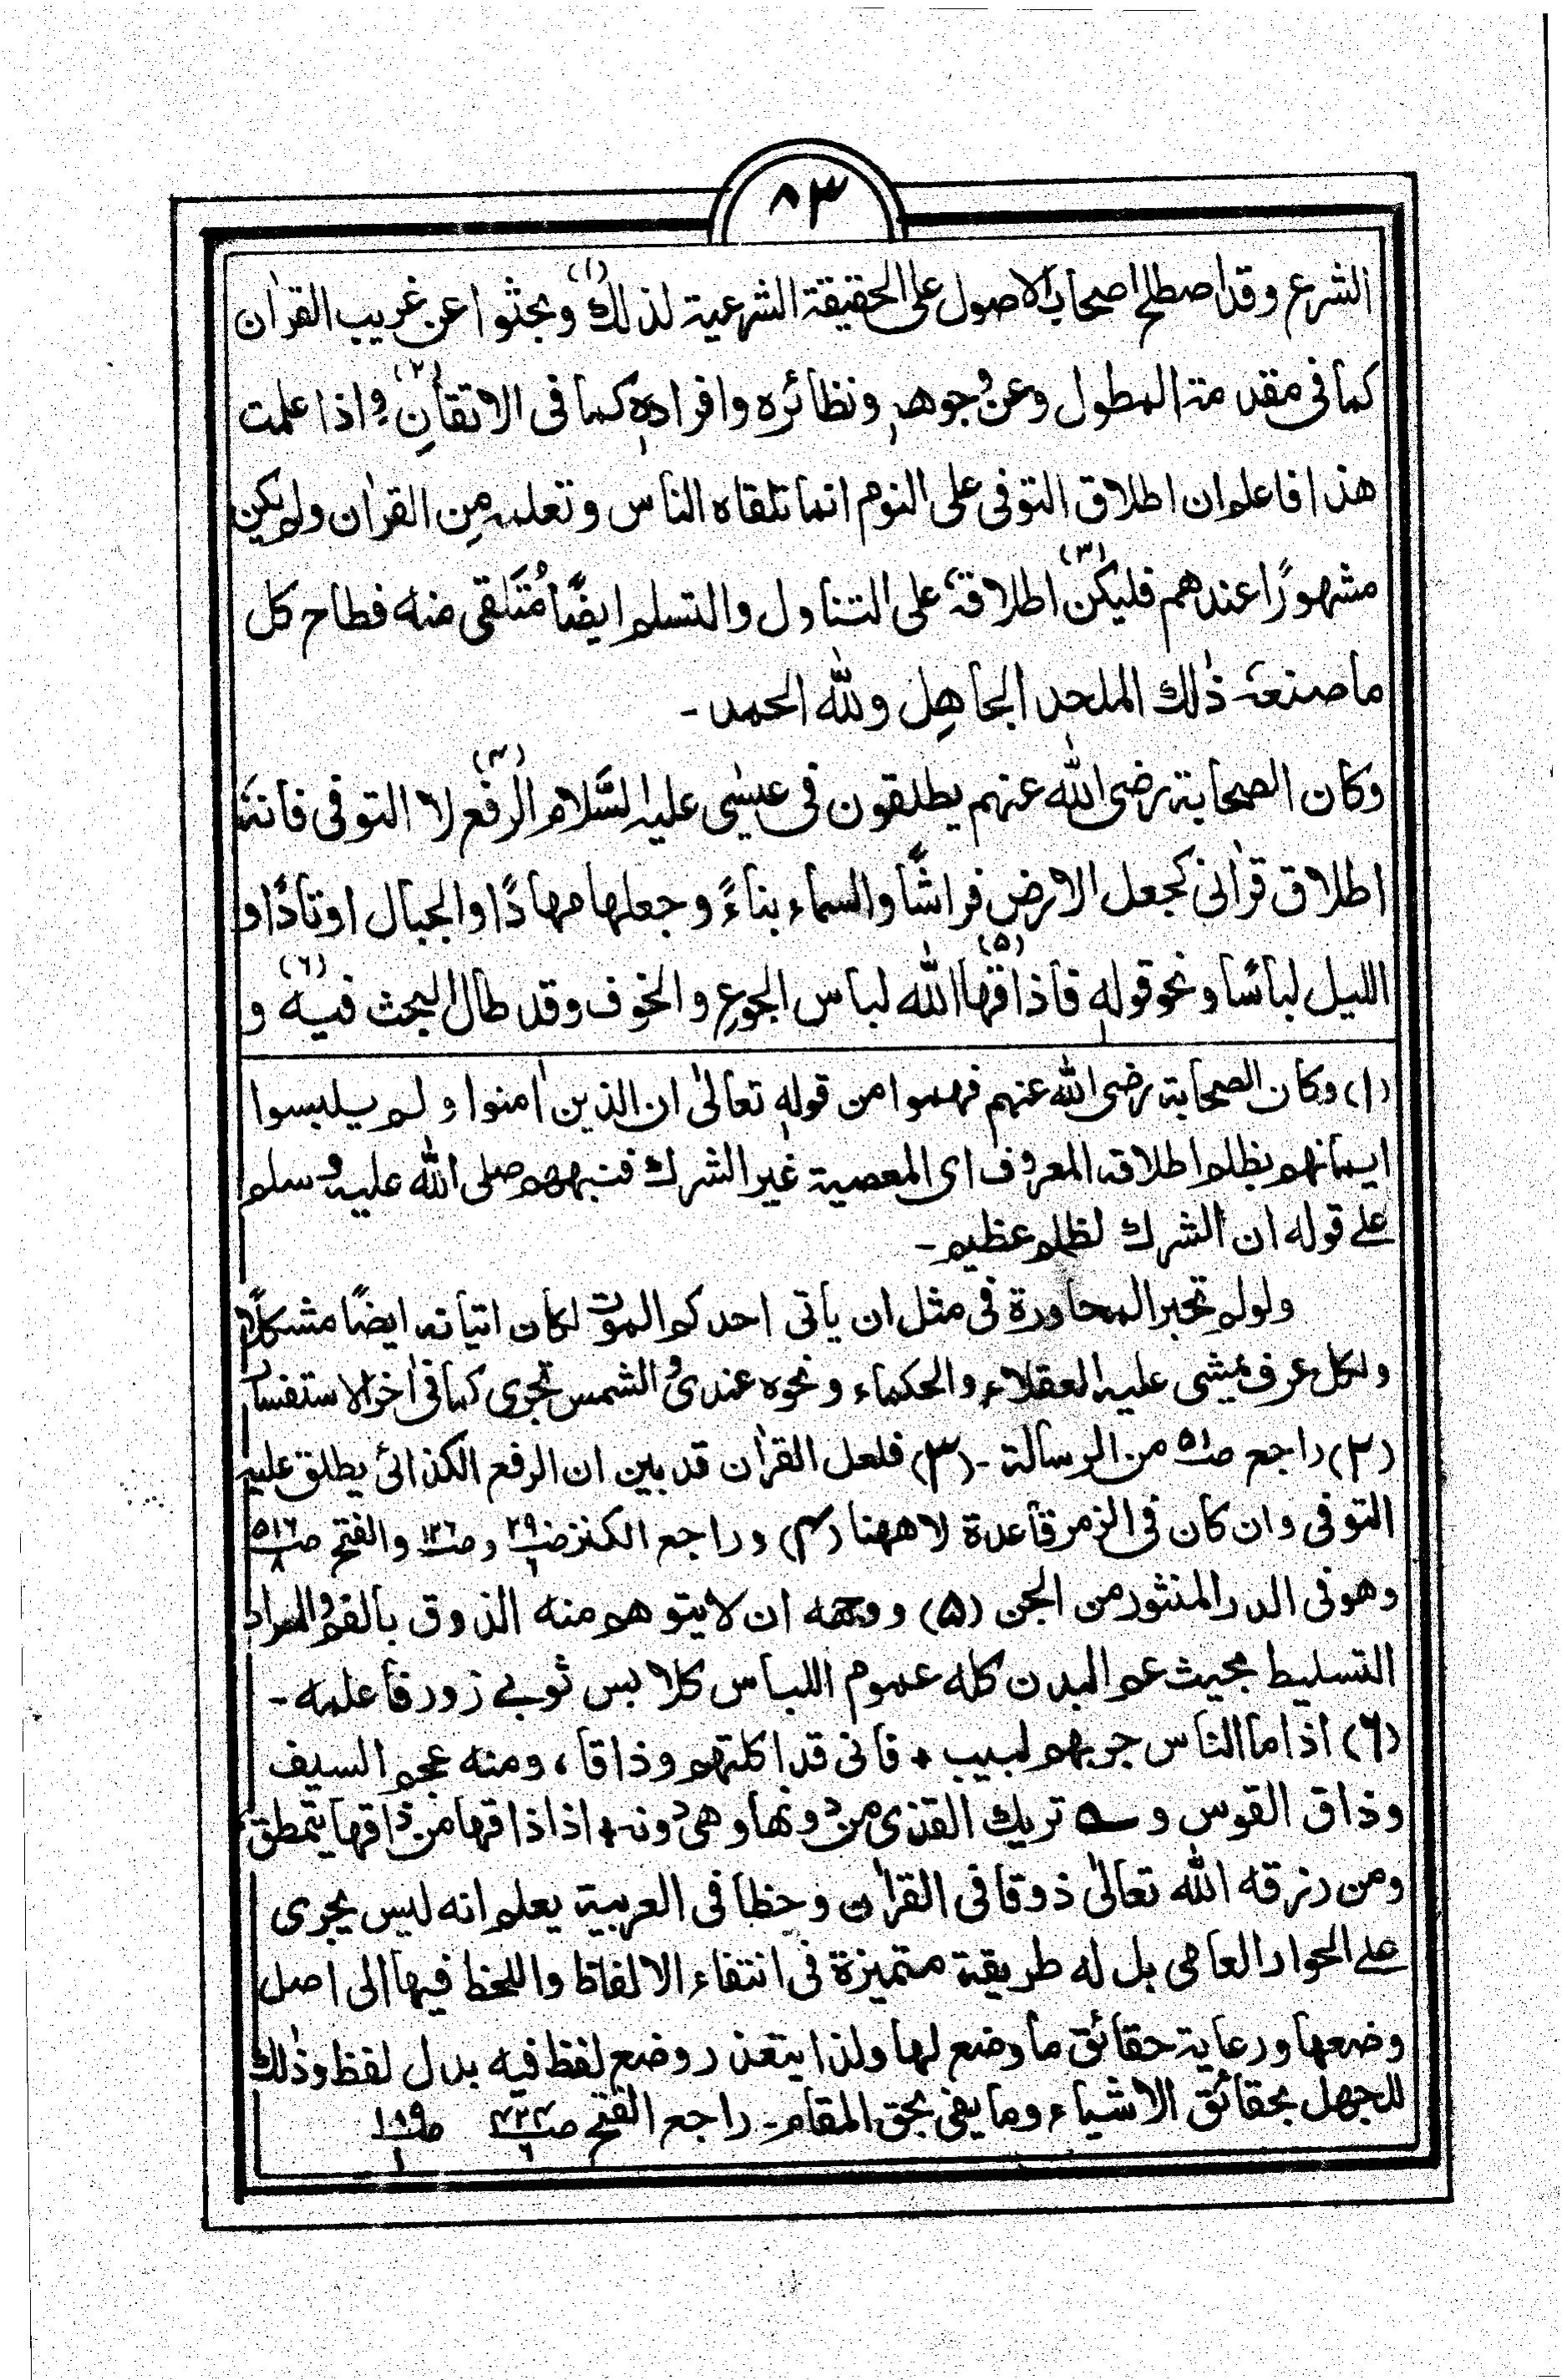 ۸۳
الشرع وقد اصطلح اصحاب الاصول علی الحقیقة الشرعیة لذلك (۱) وبحثوا عن غریب القراٰن
كما فی مقدمة المطول وعن وجوهه ونظائره وافراده كما فی الاتقان (۲) واذا علمت
هذا فاعلم ان اطلاق التوفی علی النوم انما تلقاه الناس وتعلمه من القراٰن ولم یكن
مشهورًا عندهم فلیكن (۳) اطلاقه علی التناول والتسلم ایضًا مُتَلقی منه فطاح كل
ما صنعه ذٰلك الملحد الجاهِل ولله الحمد۔
وكان الصحابة رضی الله عنهم یطلقون فی عیسٰی علیه السَّلام الرفع (۴) لا التوفی فانه
اطلاق قراٰنی كجعل الارض فراشًا والسماء بناءً وجعلها مهادًا والجبال اوتادًا و
اللیل لباسًا ونحو قولهٖ فاذاقها (۵) الله لباس الجوع والخوف وقد طال البحث فیه (۶) و
(۱) وكان الصحابة رضی الله عنهم فهموا من قولهٖ تعالیٰ ان الذین اٰمنوا ولم یلبسوا
ایمانهم بظلم اطلاقه المعروف ای المعصیة غیر الشرك فنبههم صلی الله علیه وسلم
علے قوله ان الشرك لظلم عظیم۔
ولو لم تجبر المحاورة فی مثل ان یاتی احدكم الموت لكان اتیانه ایضًا مشكلًا
ولكل عرف یمشی علیه العقلاء والحكماء ونحوه عندی والشمس تجری كما فی اٰخر الاستفسار
(۲) راجع صـ۵۱ من الرسالة۔ (۳) فلعل القراٰن قد بین ان الرفع الكذائی یطلق علیه
التوفی وان كان فی الزمر قاعدة لا ههنا (۴) وراجع الكنز صـ۲۹ وصـ۱۲۶ والفتح صـ۵۱۶/۸
وهو فی الدر المنثور من الجن (۵) ووجهه ان لا یتوهم منه الذوق بالفم والمراد
التسلیط بحیث عم البدن كله عموم اللباس كلابس ثوبے زور فاعلمه۔
(۶) اذا ما الناس جربهم لبیب ٭ فانی قد اكلتهم وذاقا، ومنه عجم السیف
وذاق القوس و ؎ تریك القذی من دونها وهی دونه ٭ اذا ذاقها من ذاقها یتمطق
ومن رزقه الله تعالیٰ ذوقا فی القراٰن وحظا فی العربیة یعلم انه لیس یجری
علے الحوار العامی بل له طریقة متمیزة فی انتقاء الالفاظ واللحظ فیها الی اصل
وضعها ورعایة حقائق ما وضع لها ولذا یتعذر وضع لفظ فیه بدل لفظ وذٰلك
للجهل بحقائق الاشیاء وما یفی بحق المقام۔ راجع الفتح صـ صـ۱۸۹/۱